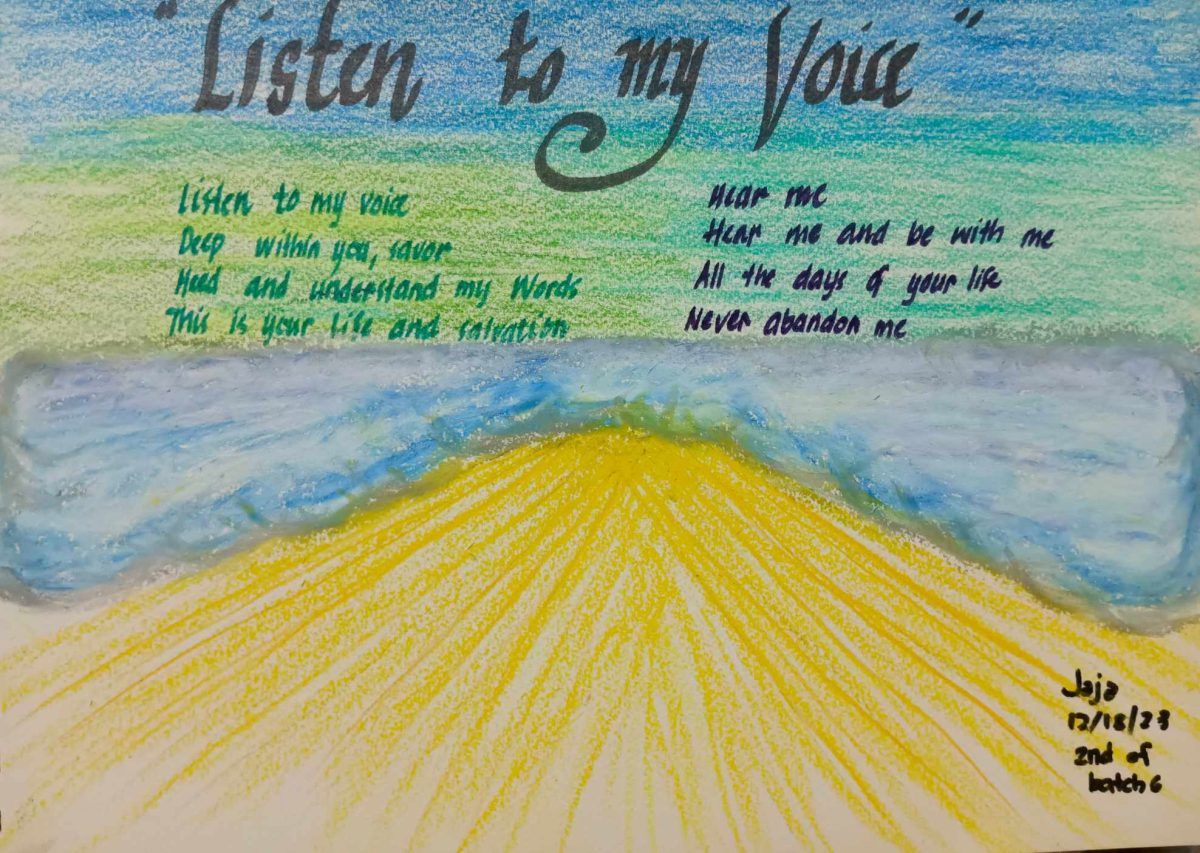 "Listen to my Voice"
Listen to my voice
Deep within you, savor
Heed and understand my Words
This is your life and salvation
Hear me
Hear me and be with me
All the days of your life
Never abandon me
Jaja
12/18/23
2nd of
batch 6